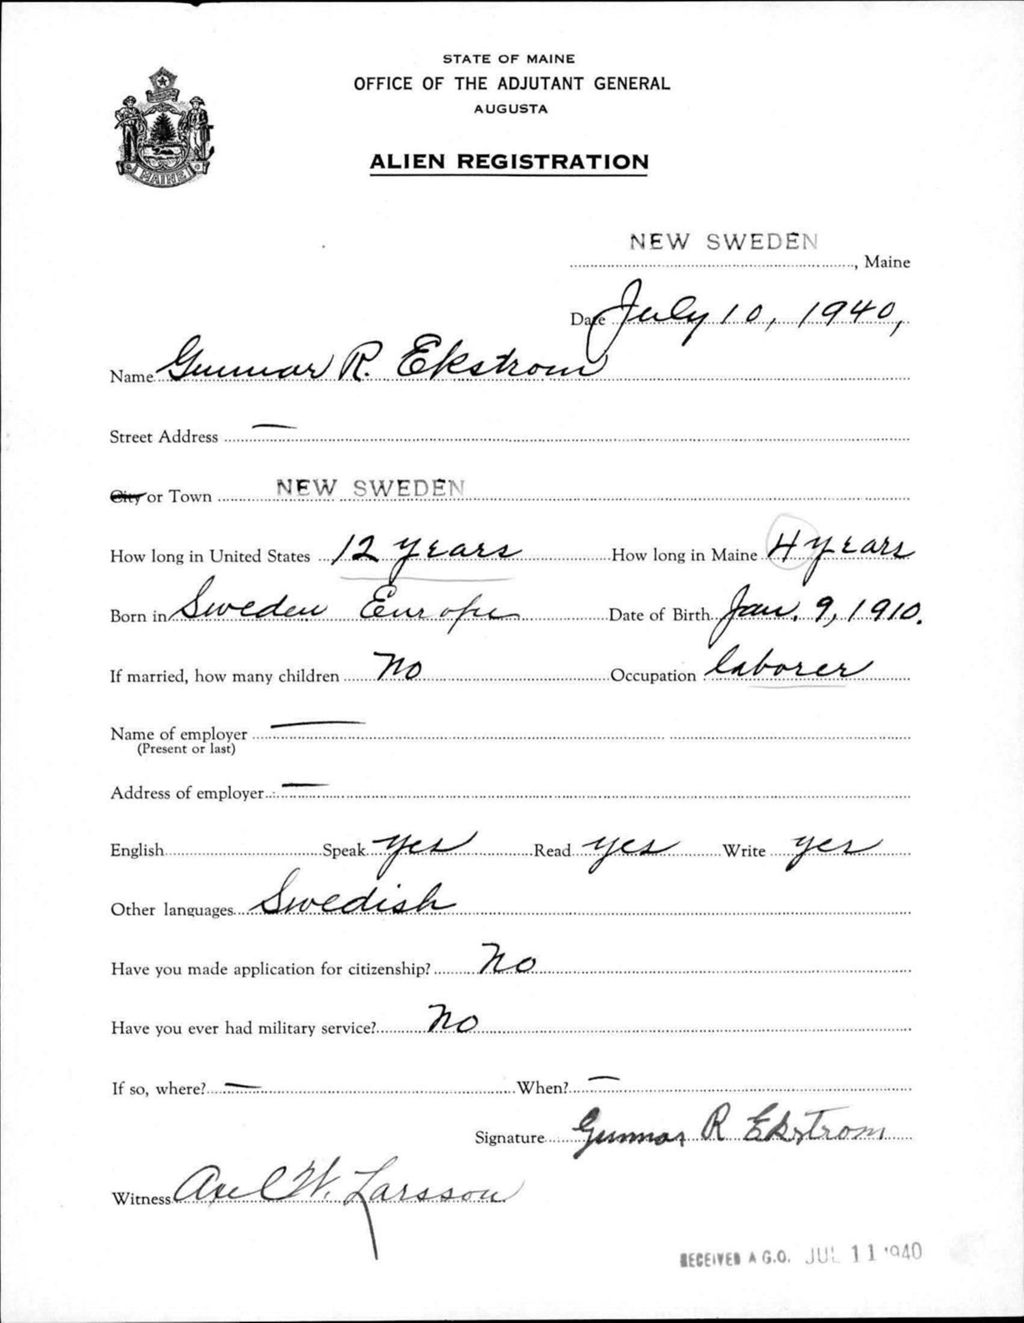 STATE OF MAINE
OFFICE OF THE ADJUTANT GENERAL
AUGUSTA
ALIEN REGISTRATION
MAINE
NEW SWEDEN
, Maine
Date July 10, 1940,
Name Gunnar R. Ekstrom
Street Address —
City or Town NEW SWEDEN
How long in United States 12 years How long in Maine 4 years
Born in Sweden Europe Date of Birth Jan. 9, 1910.
If married, how many children No Occupation laborer
Name of employer —
(Present or last)
Address of employer —
English Speak yes Read yes Write yes
Other languages Swedish
Have you made application for citizenship? No
Have you ever had military service? No
If so, where? — When? —
Signature Gunnar R Ekstrom
Witness Axel W. Larsson
RECEIVED A.G.O. JUL 11 1940